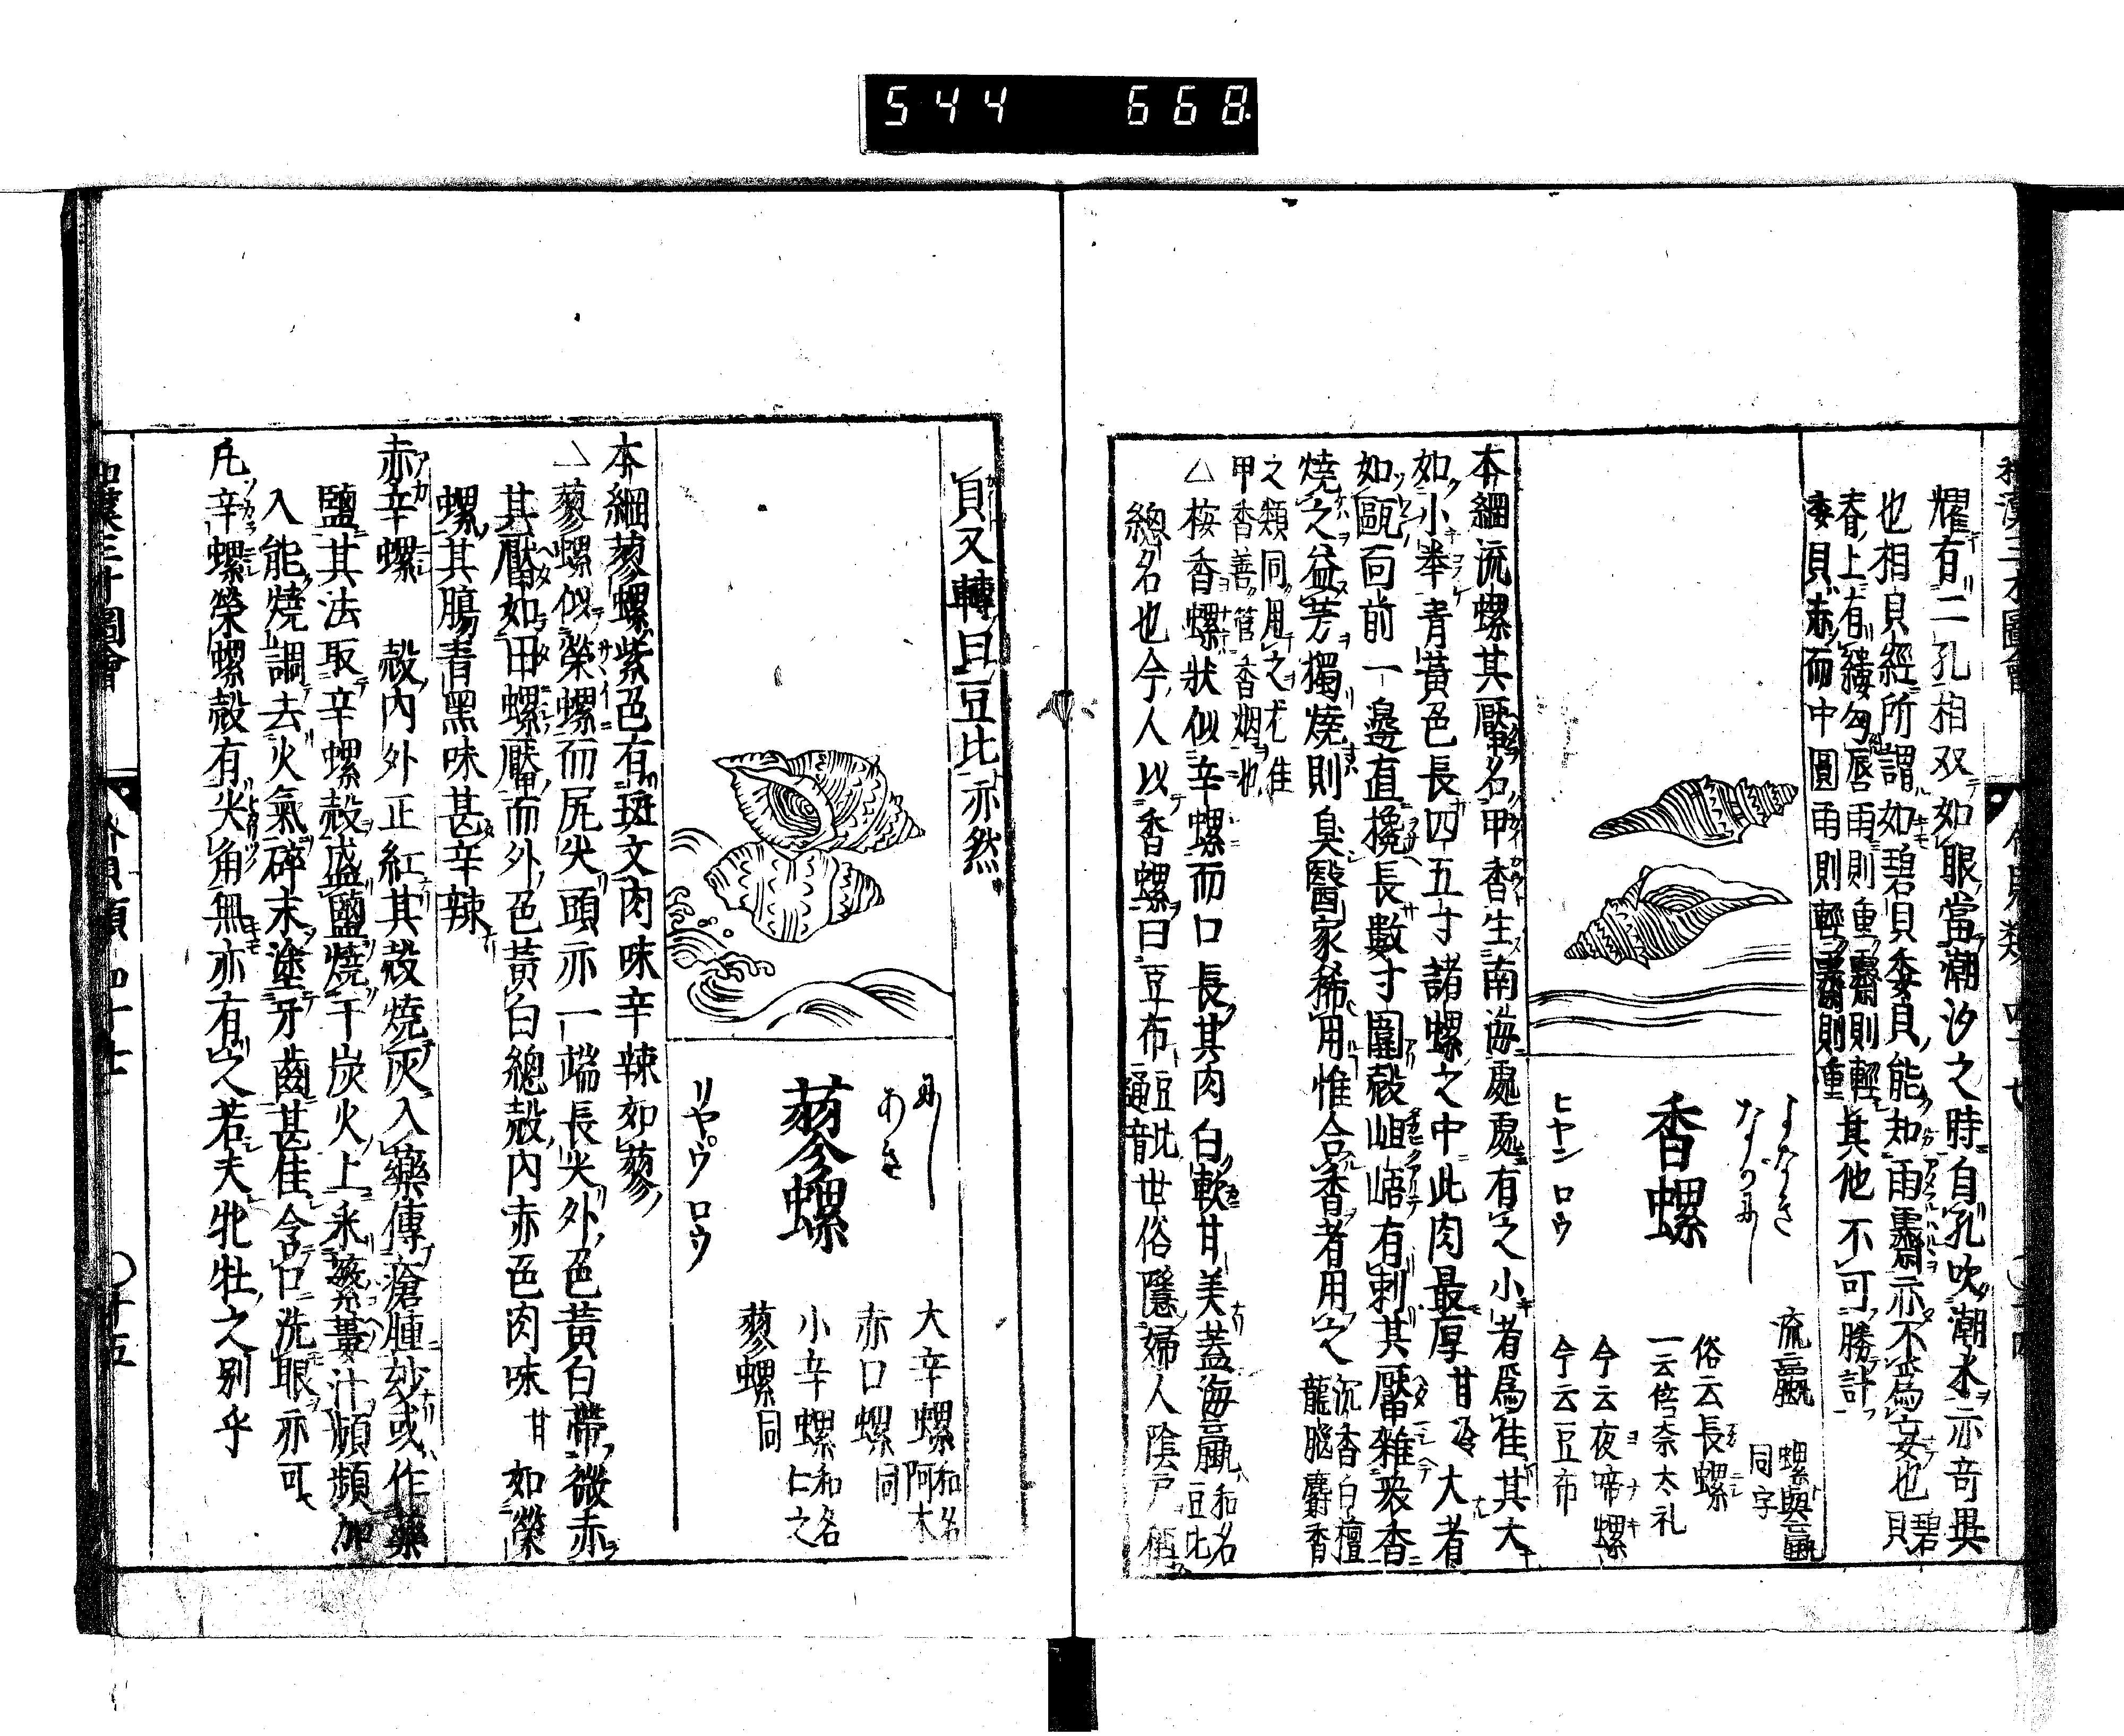 544 668
和漢三才圖會 介貝類 四十七
耀有二孔相双如眼當潮汐之時自孔吹潮水亦奇異
也相貝經所謂如碧貝委貝能知雨霽示不為妄也碧貝
脊上有縷勾唇雨則重霽則輕
委貝赤而中圓雨則輕霽則重其他不可勝計
よなき
ながにし
香螺
ヒヤン ロウ
流蠃 螺與蠃同字
俗云長螺
一云倍奈太礼
今云夜啼螺
今云豆布
本綱流螺其厴名甲香生南海處處有之小者為佳其大
如小拳青黃色長四五寸諸螺之中此肉最厚甘冷大者
如甌面前一邊直攙長數寸圍殼岨峿有刺其厴雜衆香
燒之益芳獨燒則臭醫家稀用惟合香者用之沉香白檀龍腦麝香
之類同用之尤佳
甲香善管香烟也
△按香螺狀似辛螺而口長其肉白軟甘美蓋海蠃和名豆比
總名也今人以香螺曰豆布豆比通音世俗隱婦人陰戶稱
貝又轉曰豆比亦然
にし
あき
蓼螺
リヤ゜ウ ロウ
大辛螺和名阿木
赤口螺同
小辛螺和名仁之
蓼螺同
本綱蓼螺紫色有斑文肉味辛辣如蓼
△蓼螺似榮螺而尻尖頭亦一端長尖外色黃白帶微赤
其厴如田螺厴而外色黃白總殼內赤色肉味甘如榮
螺其腸青黑味甚辛辣
赤辛螺 殼內外正紅其殼燒灰入藥傅瘡腫妙或作藥
鹽其法取辛螺殼盛鹽燒于炭火上釆蘩蔞汁頻頻加
入能燒調去火氣碎末塗牙齒甚佳含口洗眼亦可
凡辛螺榮螺殼有尖角無亦有之若夫牝牡之別乎
和漢三才圖會 介貝類 四十七 〇十五